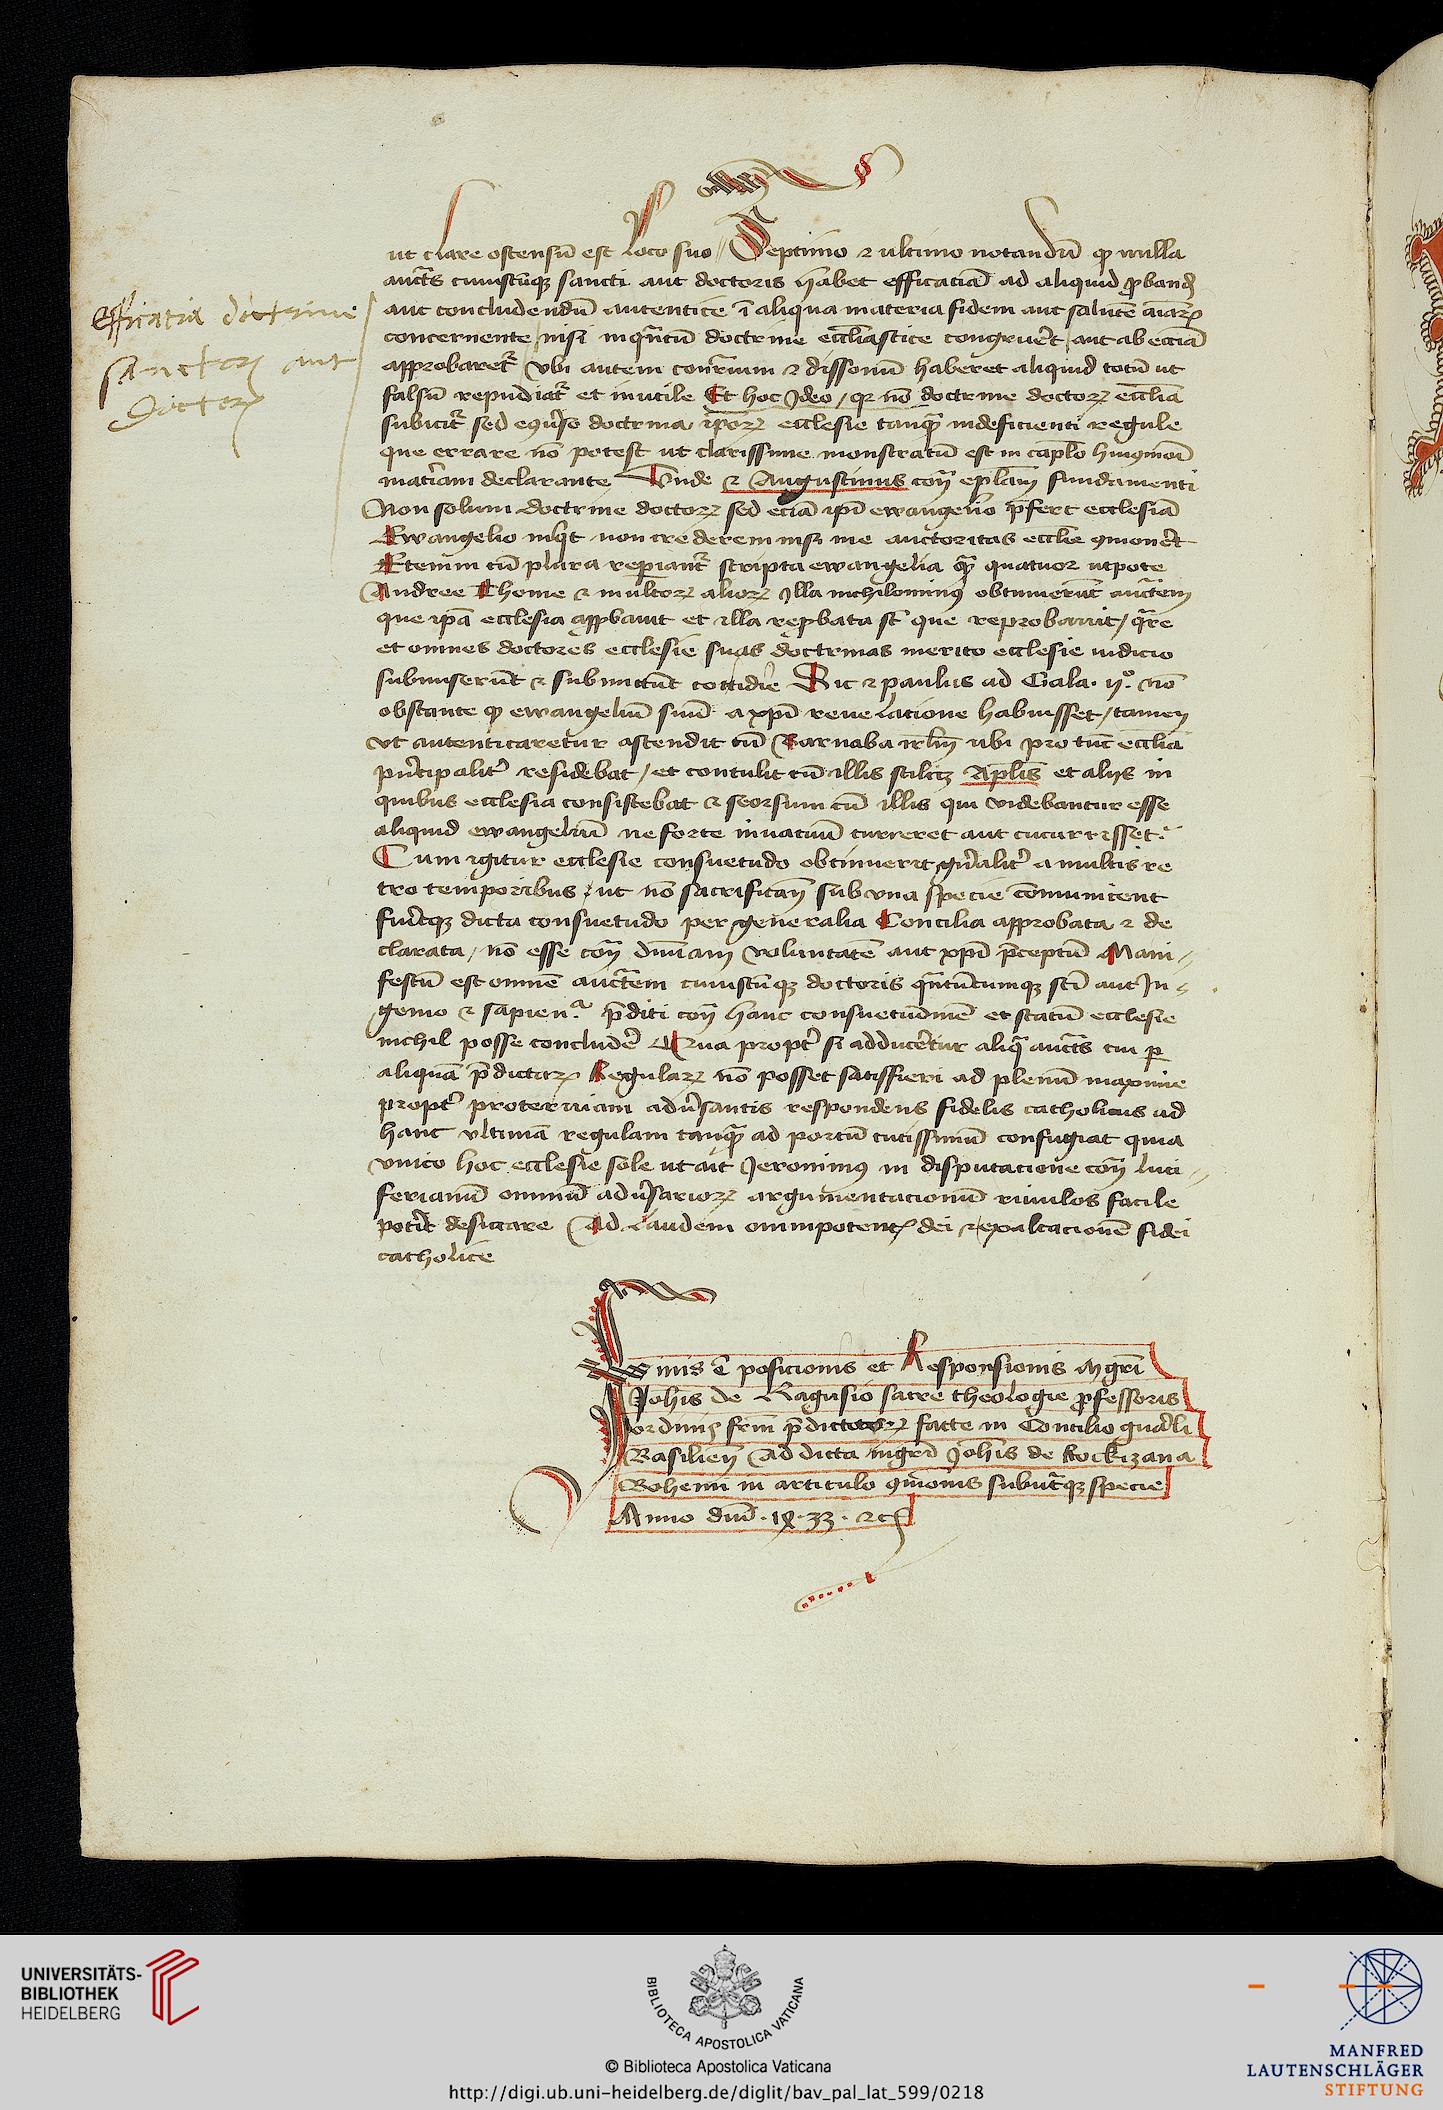 ut clare ostensū est loco suo // Septimo ⁊ ultimo notandū ꝙ nulla
auctᷓs cuiuscūqꝫ sancti aut doctoris habet efficaciā ad aliquid ꝓbandū
aut concludendū autentice ī aliqua materia fidem aut salutē aīarꝫ
concernente nisi inqᷓntū doctrine eccliastice congruerēt aut ab ecciā
approbaretᷣ Ubi autem contrarium ⁊ dissonū haberet aliquid totū ut
falsū repudiatᷣ et inutile Et hoc Ideo / qꝛ nō doctrine doctorꝫ ecclīa
subicitᷣ sed eqūso doctrina ip̄orꝫ ecclesie tanqᷓ indeficienti regule
que errare nō potest ut clarissime monstratū est in capl̄o huiusmōi
mat̄iam declarante Unde ⁊ Augustinus cont̄ ep̄lam fundamenti
Non solum doctrine doctorꝫ sed eciā ip̄i ewangelio p̄fert ecclesiā
Ewangelio inq̇t non crederem nisi me auctoritas ecclīe ꝯmonēt
Etenim cū plura repiantᷣ scripta ewangelia qᷓ quatuor utpote
Andree Thome ⁊ multorꝫ aliorꝫ Illa nichilominꝰ obtinuerūt auctᷓtem
que ip̄a ecclesia aꝓbauit et illa reꝓbata sūt que reprobauit / qᷓre
et omnes doctores ecclesie suas doctrinas merito ecclesie iudicio
submiserūt ⁊ submittūt cottidie Sic ⁊ paulus ad Gala. ijº. nō
obstante ꝙ ewangeliū suū a xp̄i reuelacione habuisset / tamen
ut autenticaretur ascendit cū Barnaba irl̄m ubi pro tūc ecclīa
pn̄cipalitᷣ residebat / et contulit cū illis scilicꝫ Apl̄is et alijs in
quibus ecclesia consistebat ⁊ seorsum cū illis qui videbantur esse
aliquid ewangeliū ne forte in uacuū curreret aut cucurrisset.
Cum igitur ecclesie consuetudo obtinuerit gn̄alitᷣ a multis re
tro temporibus / ut nō sacrifican̄ sub una specie cōmunicent
fueritqꝫ dicta consuetudo per generalia Concilia approbata ⁊ de
clarata / nō esse cont̄ diuinam voluntatē aut xp̄i p̄ceptū Mani-
festū est omnē auctᷓtem cuiuscūqꝫ doctoris qᷓntūcumqꝫ sc̄i aut In-
genio ⁊ sapien.ᵃ p̄diti cont̄ hanc consuetudinē et statū ecclesie
nichil posse concludē Qua proptᷣ si adducēretur aliqᷓ auctᷓs cui ꝑ
aliquā p̄dictarꝫ Regularꝫ nō posset satisfieri ad plenū maxime
proptᷣ proteruiam adūsantis respondens fidelis catholicus ad
hanc ultimā regulam tanqᷓ ad portū tutissimū confugiat quia
unico hoc ecclesie sole ut ait Jeronimꝰ in disputacione cont̄ luci-
ferianū omniū adūsariorꝫ argumentacionū riuulos facile
potīt desiccare Ad laudem omnipotentꝭ dei ⁊ exaltacionē fidei
catholice
Efficatia doctrine
sanctorꝫ aut
Doctorꝫ
Finis ē posicionis et Responsionis mgrī
Joh̄is de Ragusio sacre theologie ꝓfessoris
ordinis frm̄ p̄dictorꝫ facte in Concilio gn̄ali
Basilien̄ Ad dicta mgrī Joh̄is de Rockizana
Bohemi in articulo ꝯmōnis sub utᷓqꝫ specie
Anno dn̄i . 1⁊.33. ⁊cꝭ
UNIVERSITÄTS-
BIBLIOTHEK
HEIDELBERG
BIBLIOTECA APOSTOLICA VATICANA
© Biblioteca Apostolica Vaticana
http://digi.ub.uni-heidelberg.de/diglit/bav_pal_lat_599/0218
MANFRED
LAUTENSCHLÄGER
STIFTUNG